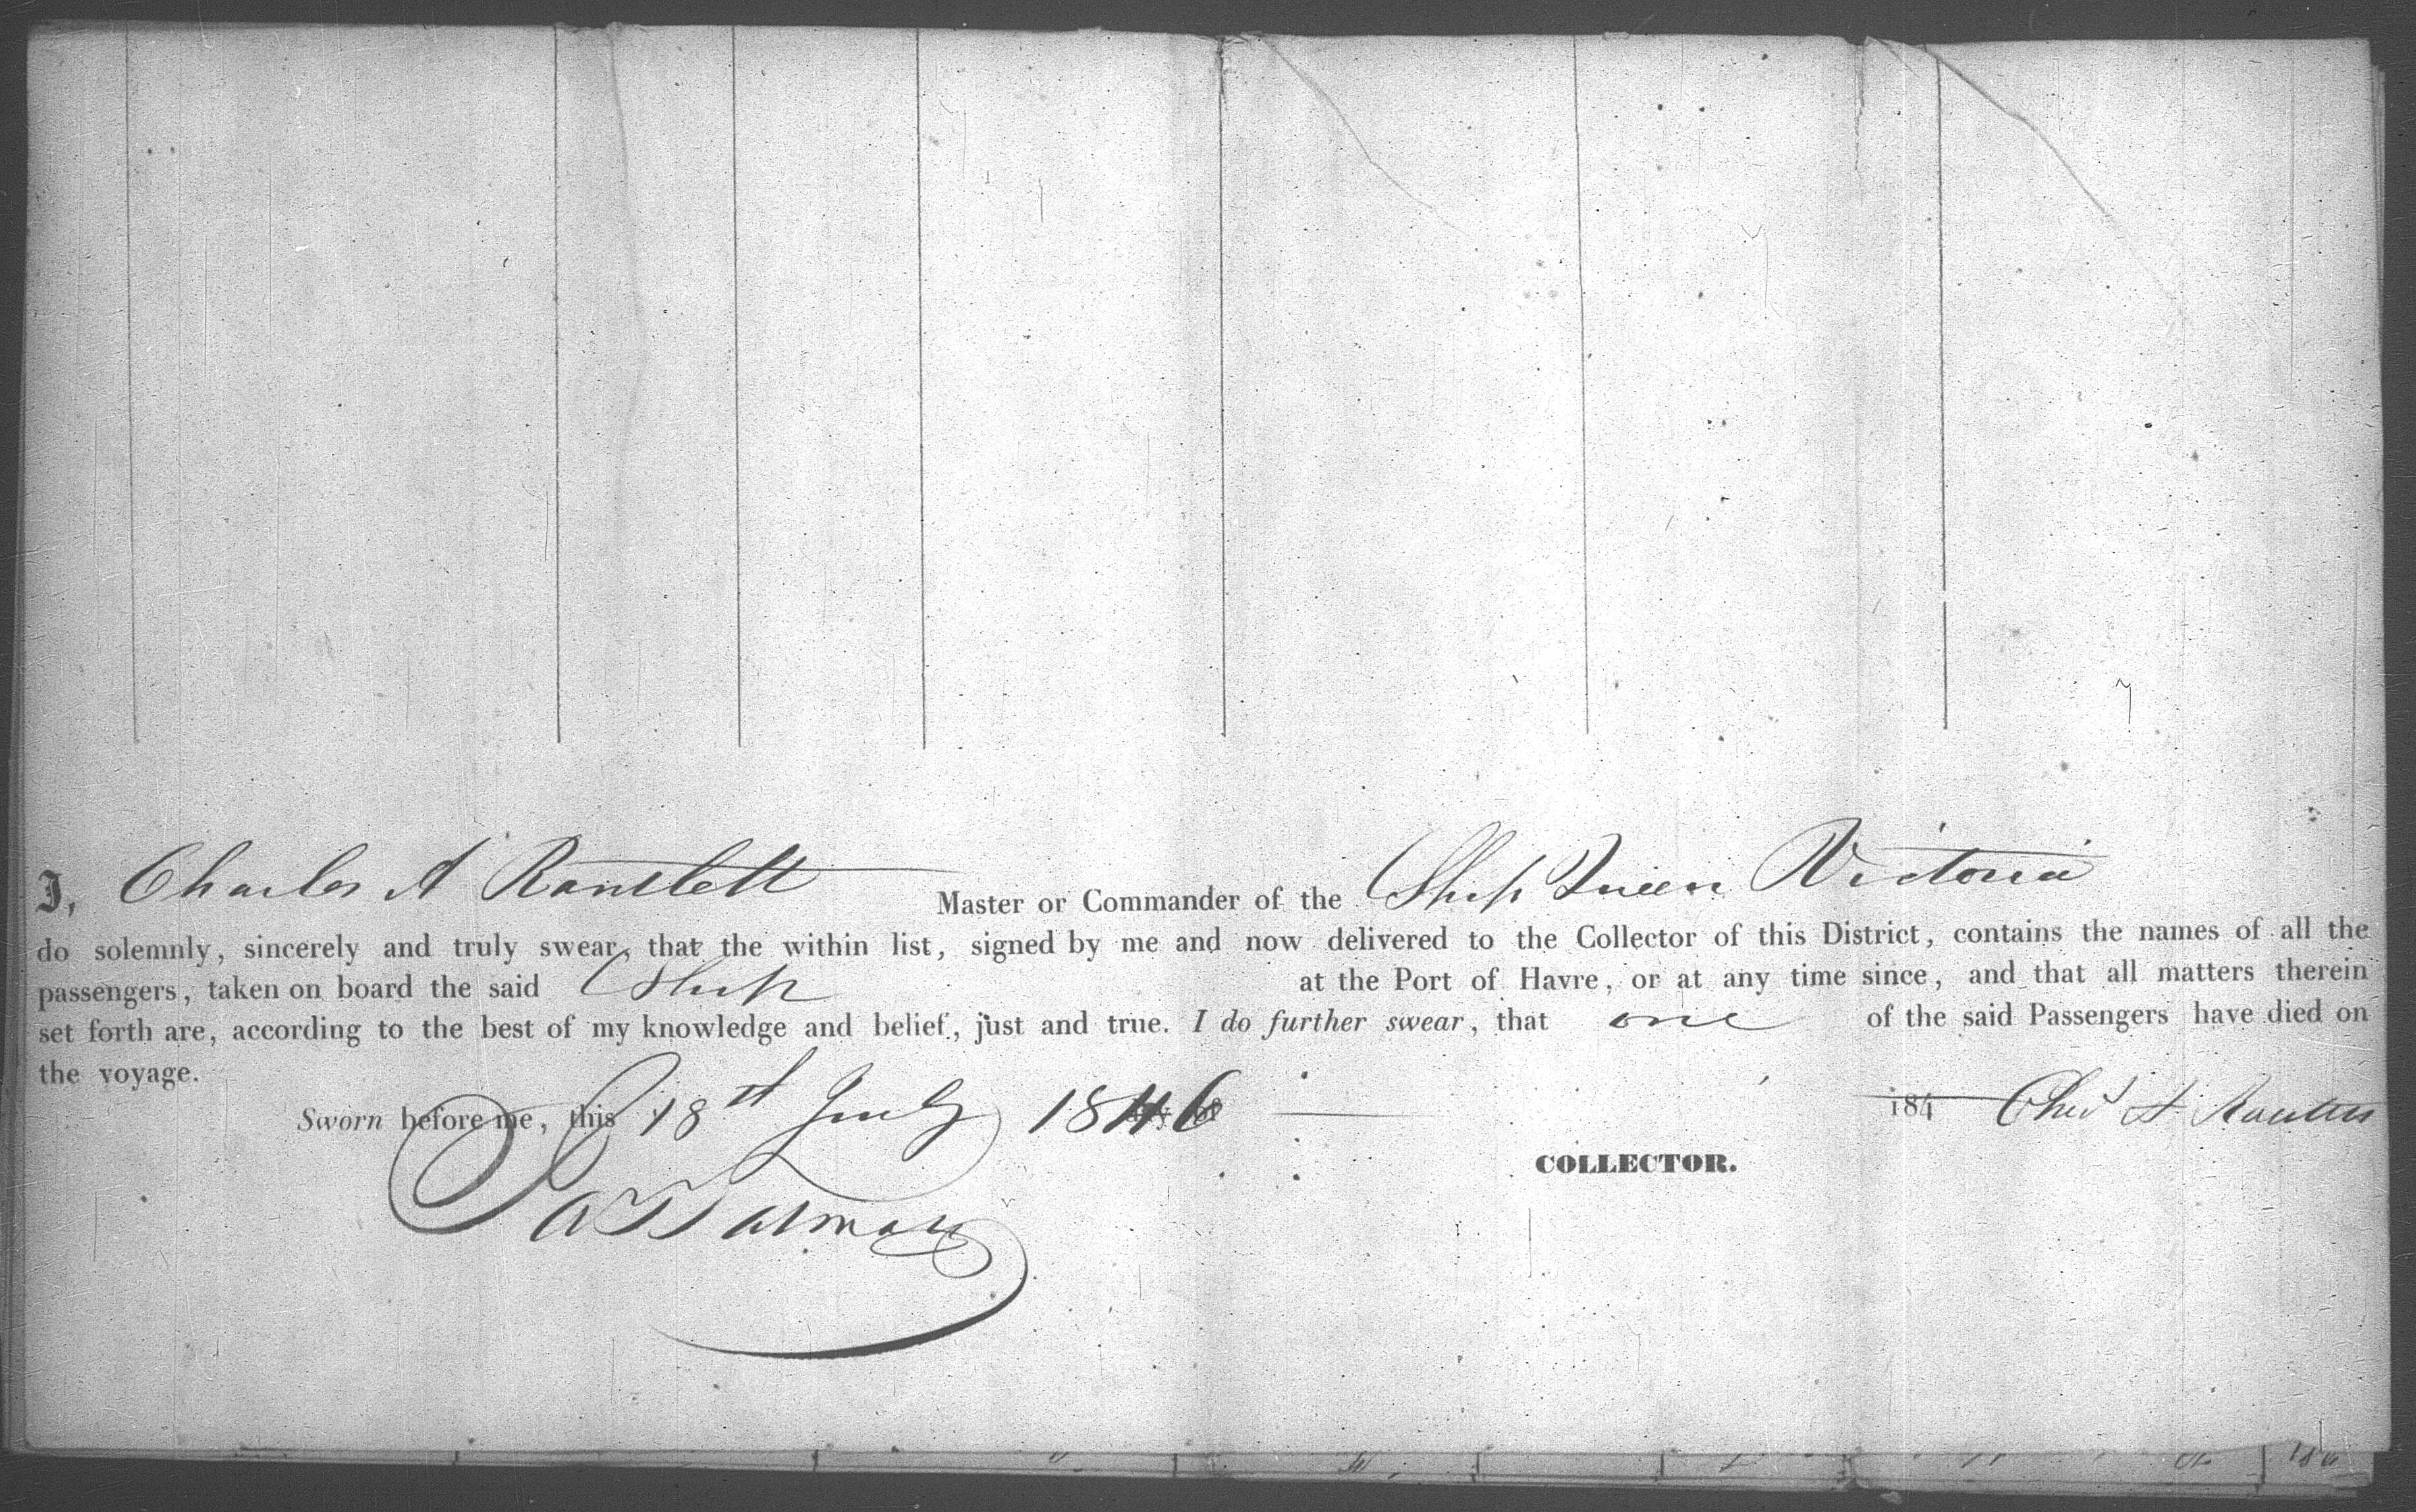 I, Charles A Ranlett Master or Commander of the Ship Queen Victoria
do solemnly, sincerely and truly swear, that the within list, signed by me and now delivered to the Collector of this District, contains the names of all the
passengers, taken on board the said Ship at the Port of Havre, or at any time since, and that all matters therein
set forth are, according to the best of my knowledge and belief, just and true. I do further swear, that one of the said Passengers have died on
the voyage.
Sworn before me, this 18th July 1846 184 Chas A Ranlett
COLLECTOR.